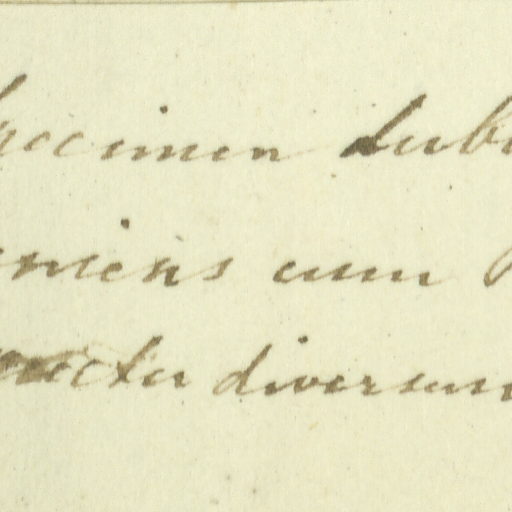 specimen dub
eniens cum
uctu diversum